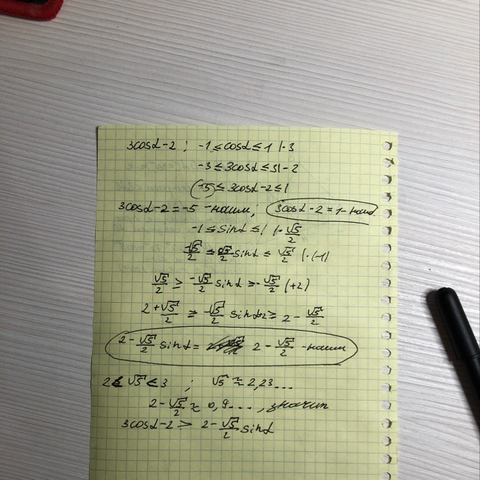 3cosα-2 ; -1 ≤ cosα ≤ 1 | · 3
-3 ≤ 3cosα ≤ 3 | -2
-5 ≤ 3cosα-2 ≤ 1
3cosα-2 = -5 - наим; 3cosα-2 = 1 - наиб
-1 ≤ sinα ≤ 1 | · √5/2
-√5/2 ≤ √5/2 sinα ≤ √5/2 | · (-1)
√5/2 ≥ -√5/2 sinα ≥ -√5/2 (+2)
2+√5/2 ≥ -√5/2 sinα ≥ 2-√5/2
2-√5/2 sinα = 2-√5/2 - наим
2 < √5 < 3 ; √5 ≈ 2,23...
2-√5/2 ≈ 0,9..., значит
3cosα-2 > 2-√5/2 sinα